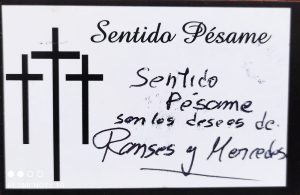 Sentido Pésame
Sentido
Pésame
son los deseos de
Ramses y Mercedes